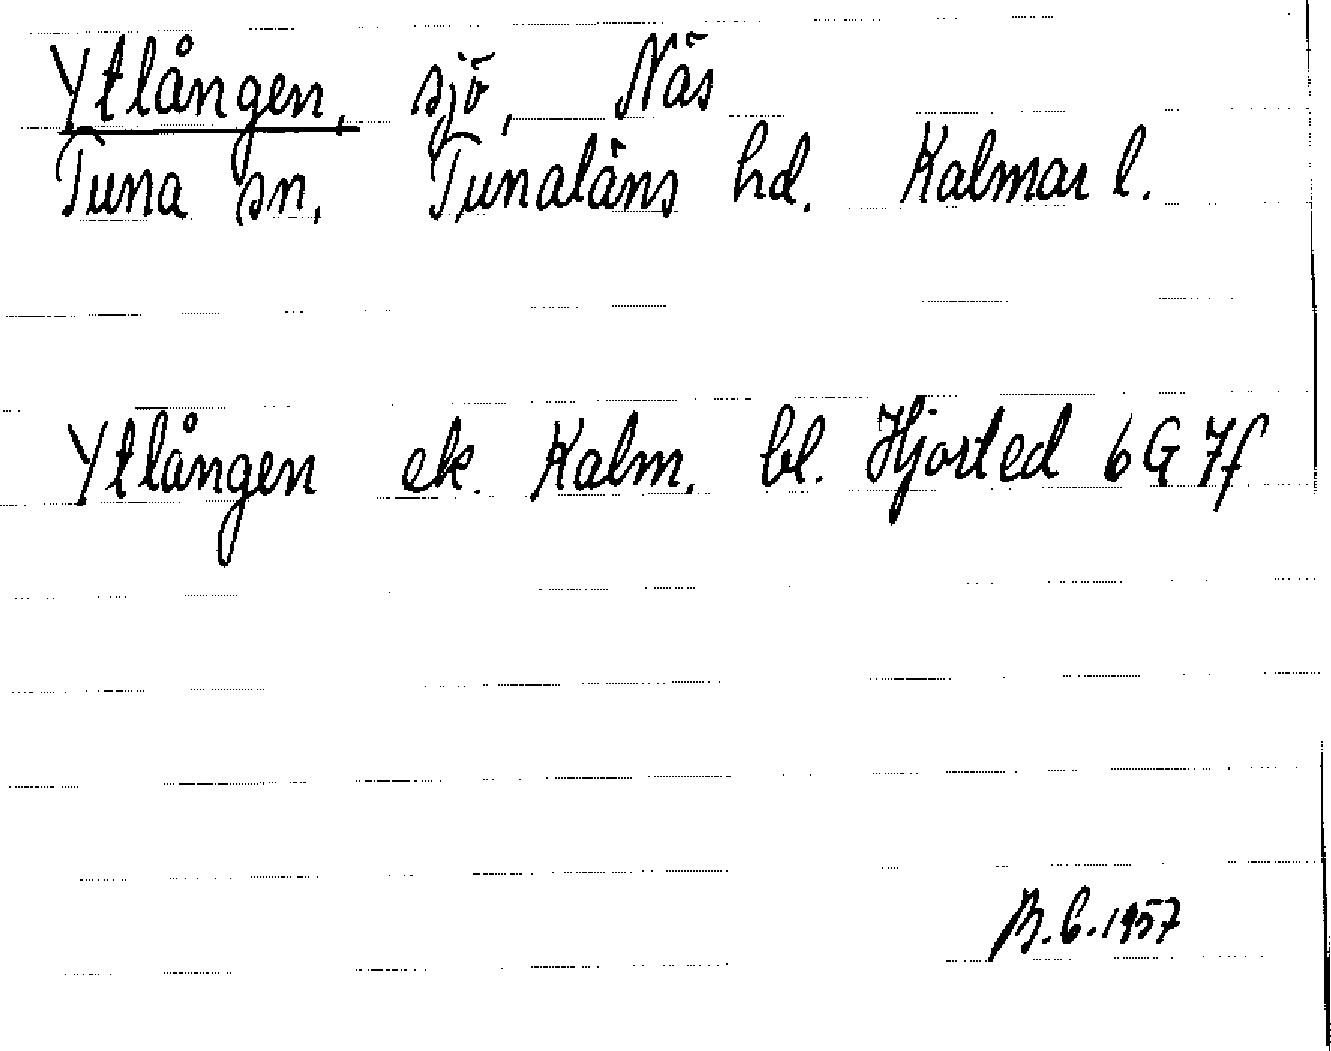 Ytlången, sjö, Näs
Tuna sn. Tunaläns hd. Kalmar l.
Ytlången ek. Kalm. bl. Hjorted 6G 7f
B.G.1957